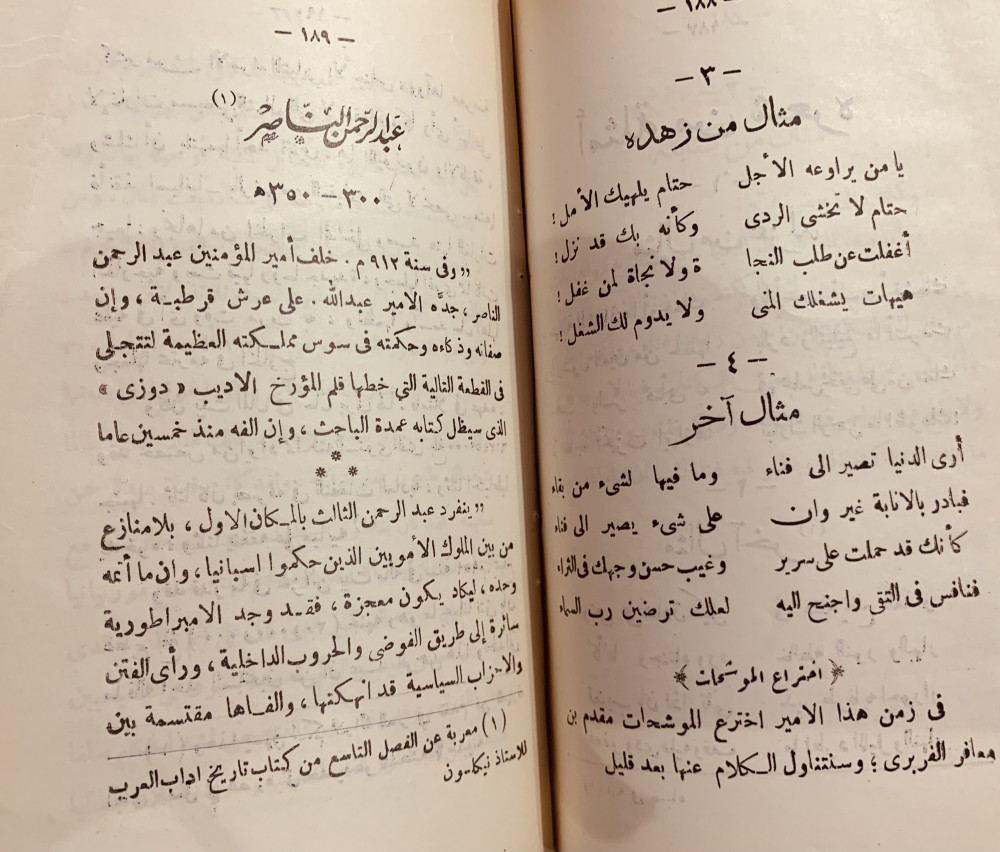 — ١٨٨ —
— ٣ —
مثال من زهده
يا من يراوعه الأجل حتام يلهيك الأمل !
حتام لا تخشى الردى وكأنه بك قد نزل !
أغفلت عن طلب النجا ة ولا نجاة لمن غفل !
هيهات يشغلك المنى ولا يدوم لك الشغل !
— ٤ —
مثال آخر
أرى الدنيا تصير الى فناء وما فيها لشىء من بقاء
فبادر بالانابة غير وان على شىء يصير الى فناء
كأنك قد حملت على سرير وغيب حسن وجهك فى الثراء
فنافس فى التقى واجنح اليه لعلك ترضين رب السماء
﴿ اختراع الموشحات ﴾
فى زمن هذا الامير اخترع الموشحات مقدم بن
معافر الفريرى ؛ وسنتناول الكلام عنها بعد قليل
— ١٨٩ —
عبد الرحمن الناصر (١)
٣٠٠ — ٣٥٠ ه
„ وفى سنة ٩١٢ م . خلف أمير المؤمنين عبد الرحمن
الناصر ، جدَّه الامير عبدالله . على عرش قرطبة ، وإن
صفاته وذكاءه وحكمته فى سوس مملكته العظيمة لتتجلى
فى القطعة التالية التي خطها قلم المؤرخ الاديب « دوزى »
الذى سيظل كتابه عمدة الباحث ، وإن الفه منذ خمسين عاما
* * *
„ ينفرد عبد الرحمن الثالث بالمكان الاول ، بلا منازع
من بين الملوك الأمويين الذين حكموا اسبانيا ، وان ما أتمه
وحده ، ليكاد يكون معجزة ، فقد وجد الامبراطورية
سائرة إلى طريق الفوضى والحروب الداخلية ، ورأى الفتن
والاحزاب السياسية قد انهكتها ، والفاها مقتسمة بين
(١) معربة عن الفصل التاسع من كتاب تاريخ اداب العرب
للاستاذ نيكلسون